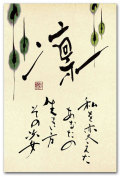 凛
私を支えた
あなたの
生き方
その姿